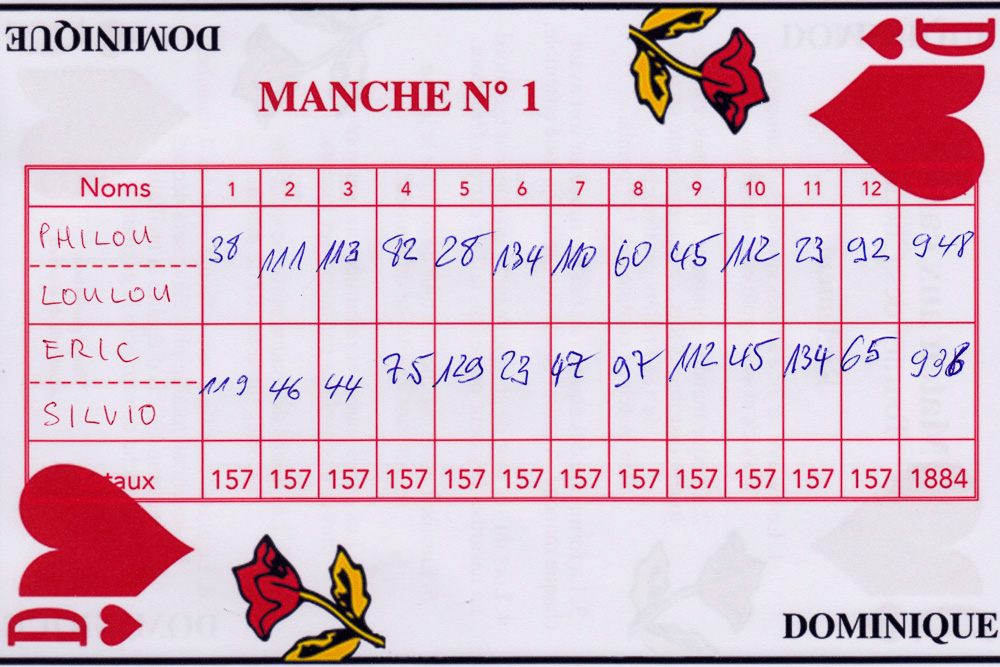 DOMINIQUE
D
MANCHE N° 1
Noms 1 2 3 4 5 6 7 8 9 10 11 12
PHILOU 38 111 113 82 28 134 110 60 45 112 23 92 948
LOULOU
ERIC 119 46 44 75 129 23 47 97 112 45 134 65 936
SILVIO
taux 157 157 157 157 157 157 157 157 157 157 157 157 1884
D
DOMINIQUE